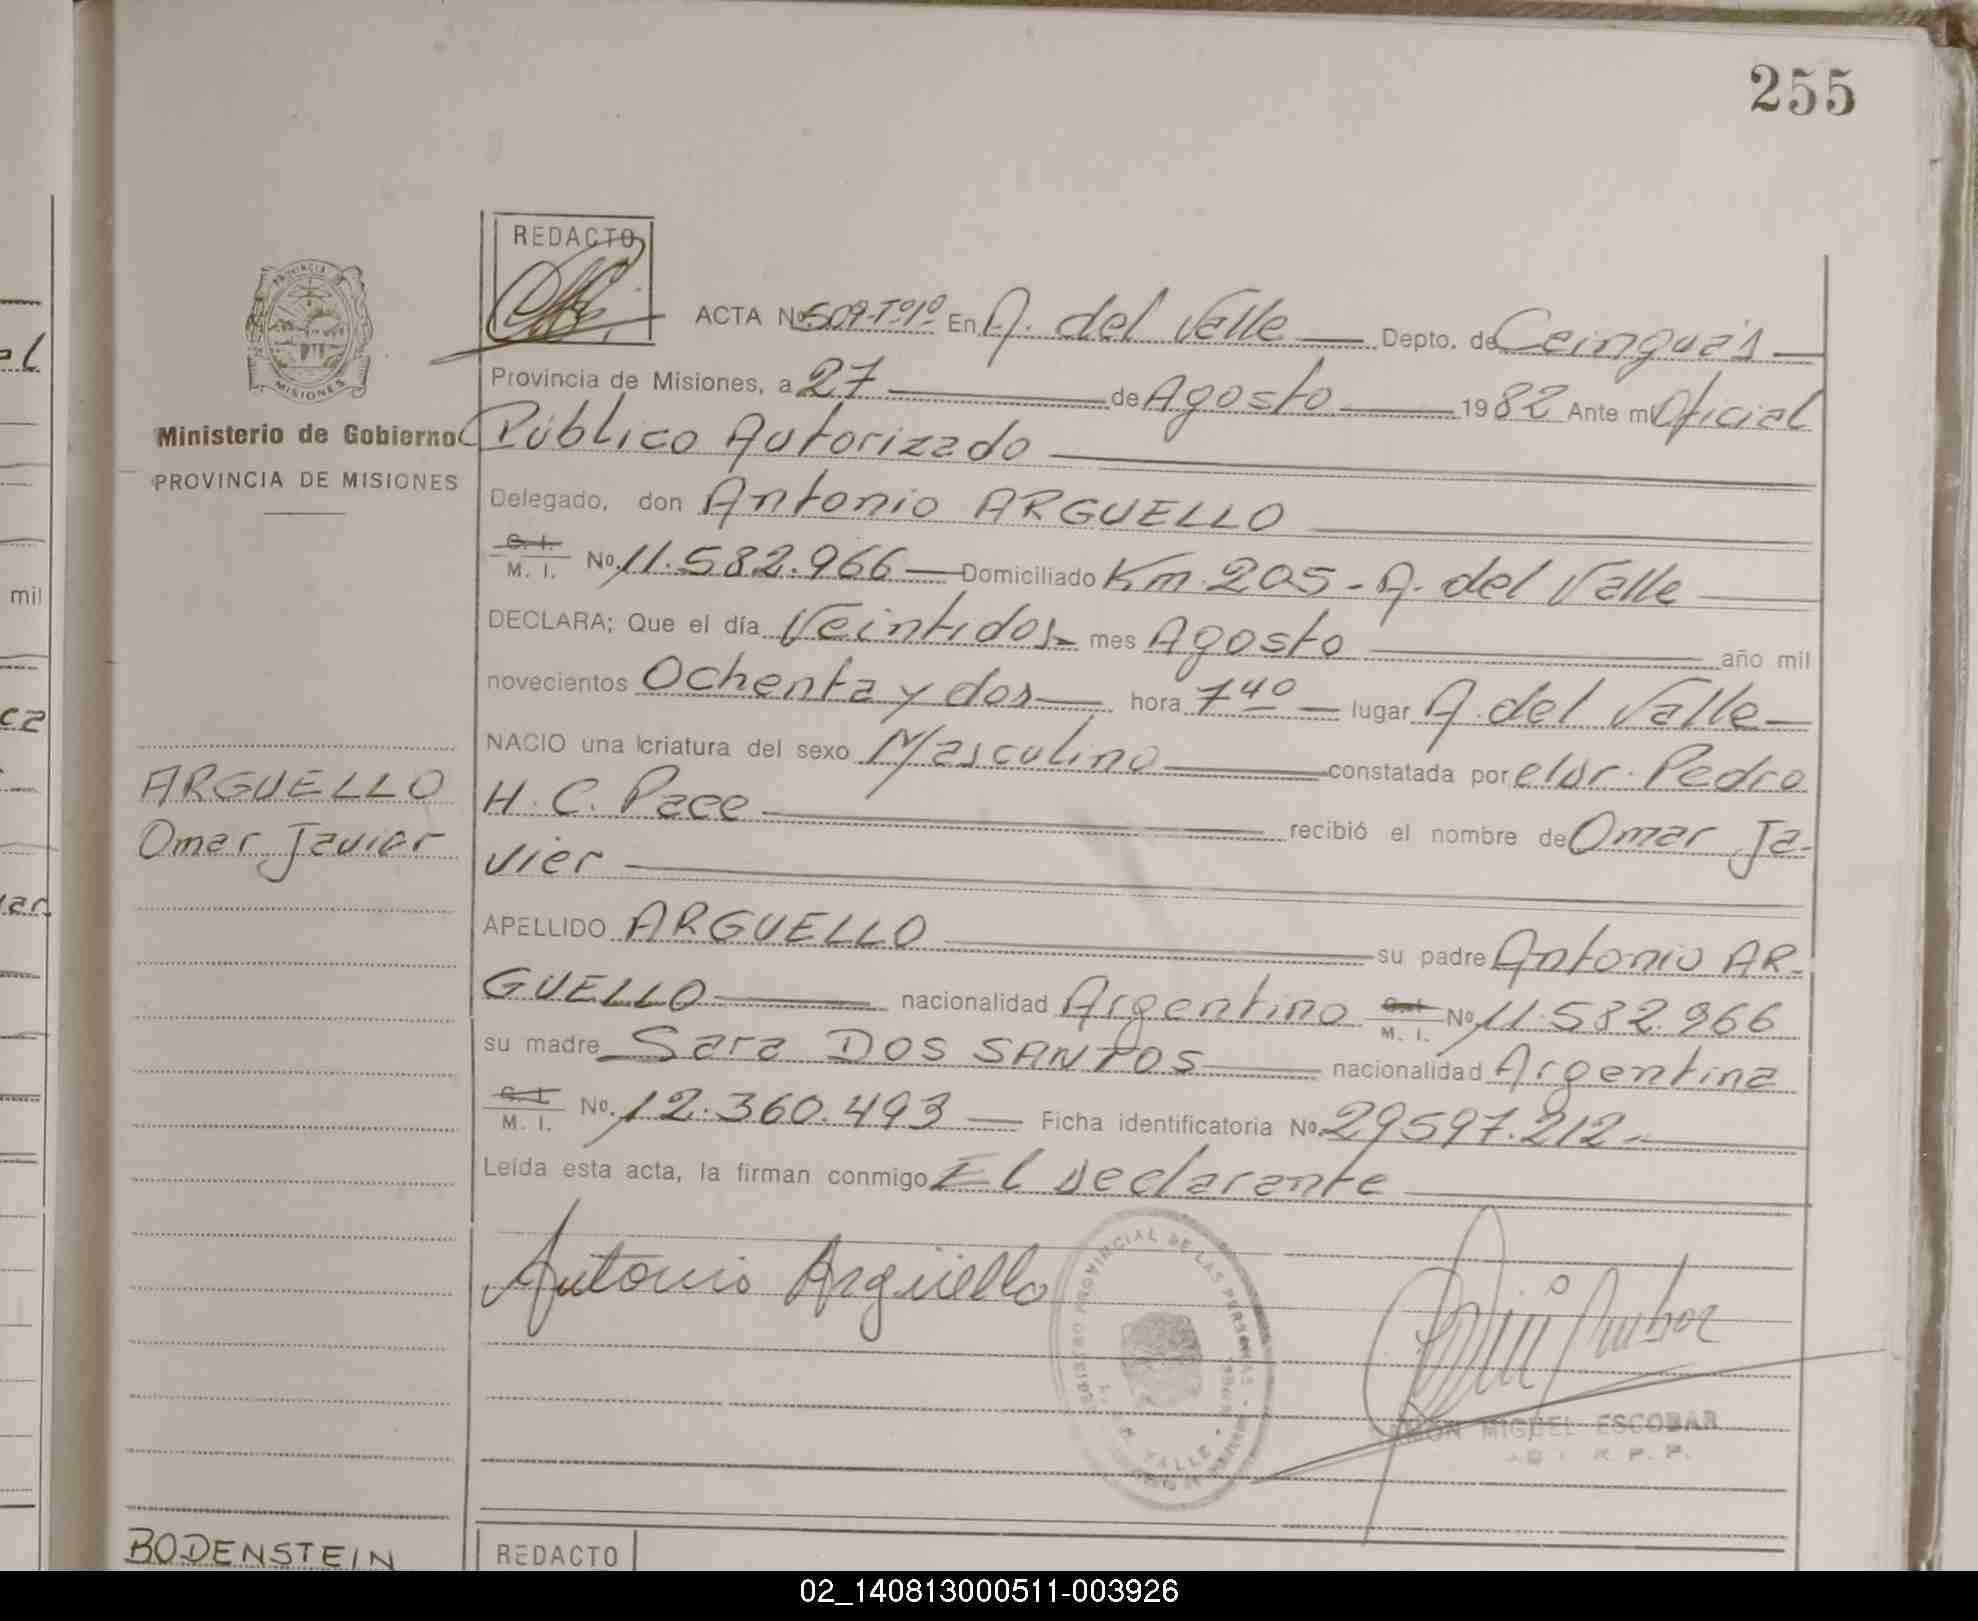 255
REDACTO
ACTA Nº 509-Tº1º En A. del Valle Depto. de Ceinguás
Provincia de Misiones, a 27 de Agosto 1982 Ante mi Oficial
Ministerio de Gobierno
Público Autorizado
PROVINCIA DE MISIONES
Delegado, don Antonio ARGUELLO
C. I.
M. I. Nº 11.582.966 Domiciliado Km. 205 - A. del Valle
DECLARA; Que el día Veintidos mes Agosto año mil
novecientos Ochenta y dos hora 7 40 lugar A. del Valle
NACIO una criatura del sexo Masculino constatada por el Dr. Pedro
H. C. Pace recibió el nombre de Omar Ja-
vier
ARGUELLO
Omar Javier
APELLIDO ARGUELLO su padre Antonio AR-
GUELLO nacionalidad Argentino C. I. M. I. Nº 11.582.966
su madre Sara DOS SANTOS nacionalidad Argentina
C. I.
M. I. Nº. 12.360.493 Ficha identificatoria Nº 29597.212.-
Leída esta acta, la firman conmigo El declarante
Antonio Argüello
PROVINCIAL DE LAS PERSONAS
VALLE
MIGUEL ESCOBAR
BODENSTEIN
REDACTO
mil
02_140813000511-003926